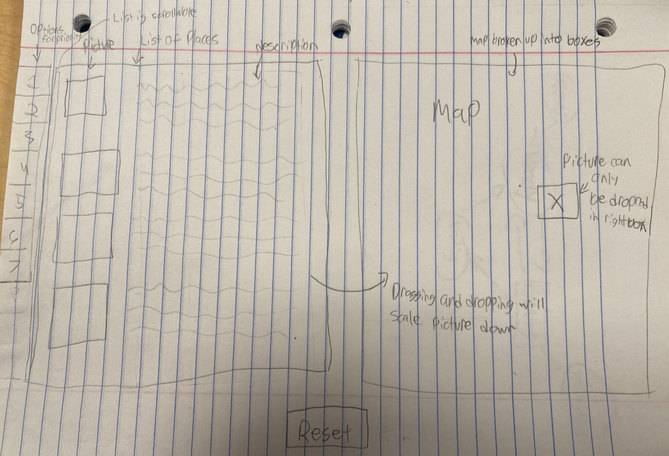 List is scrollable
Options
for priority
Picture
List of Places
description
Map broken up into boxes
1
2
3
4
5
6
7
Map
Picture can
only
be dropped
in right box
X
Dragging and dropping will
scale picture down
Reset